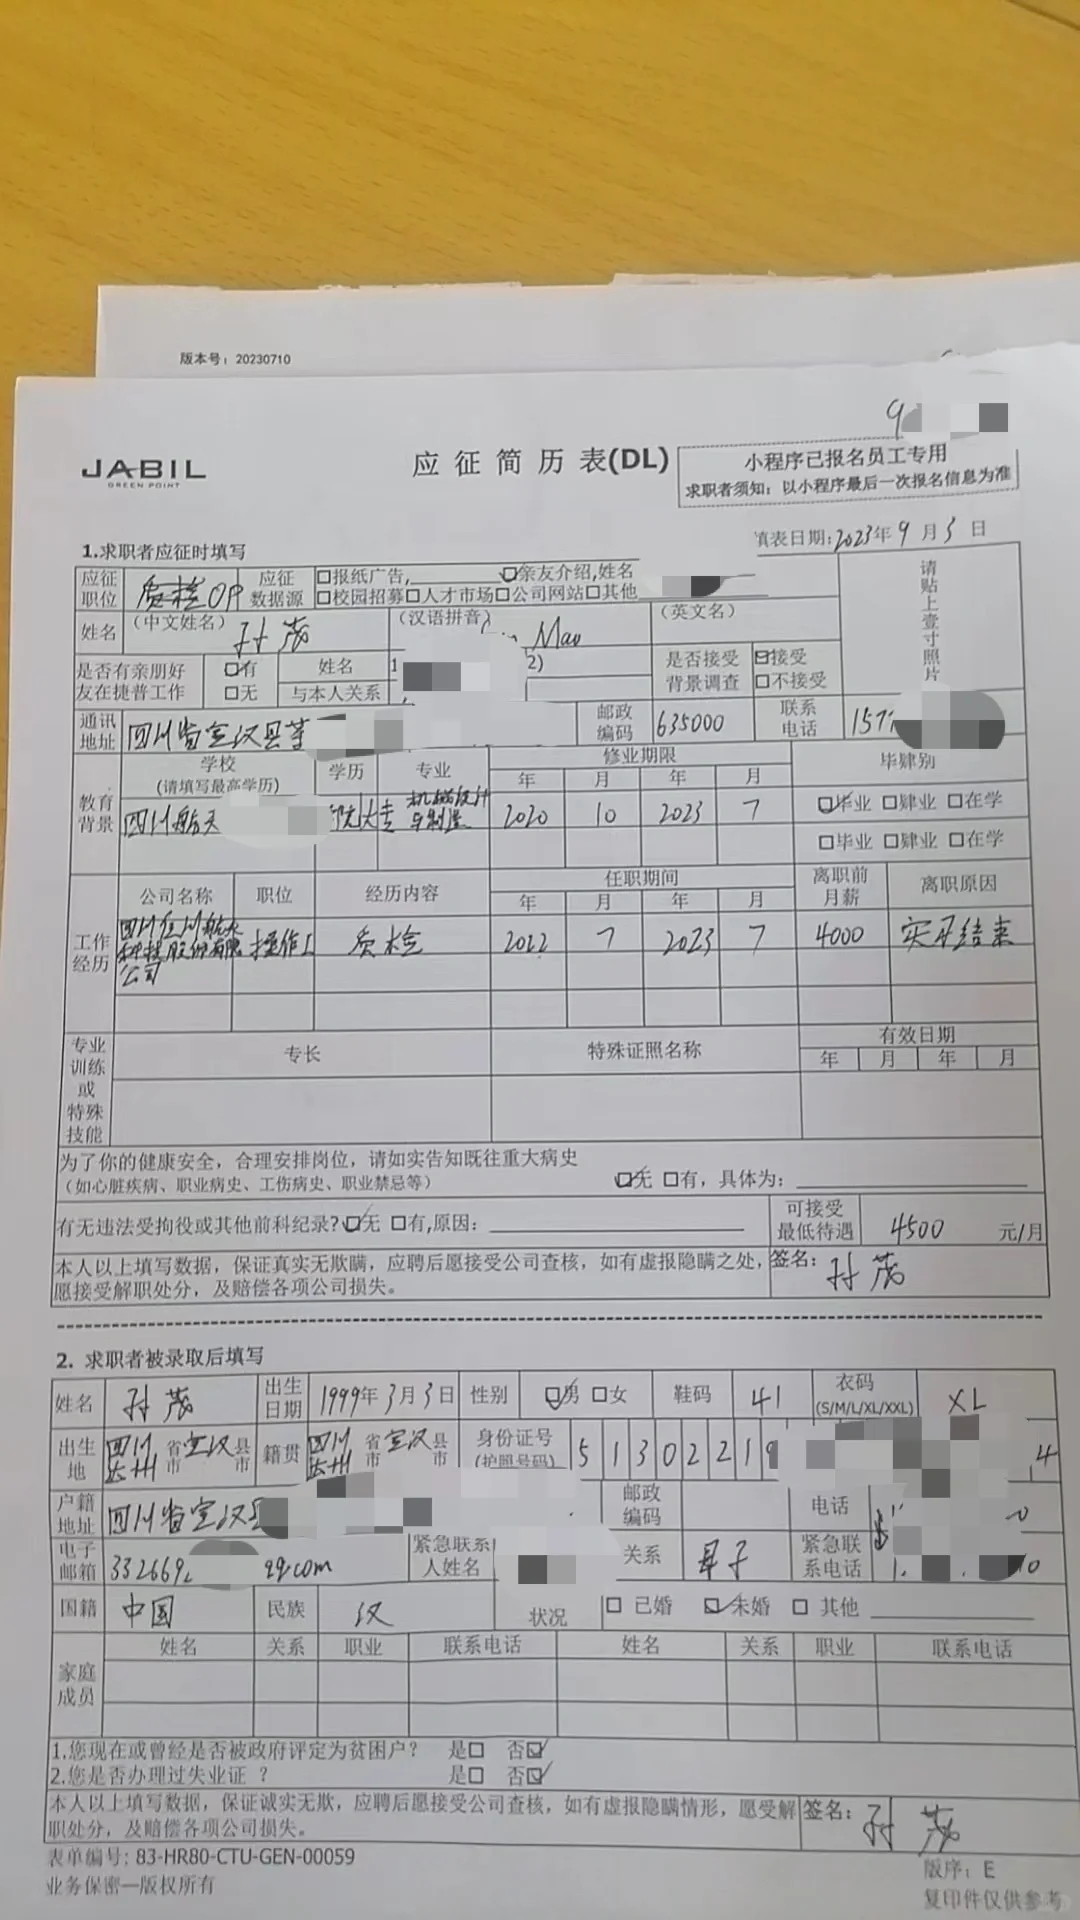 版本号：20230710
9
JABIL
GREEN POINT
应征简历表(DL)
小程序已报名员工专用
求职者须知：以小程序最后一次报名信息为准
填表日期:2023年9月3日
1.求职者应征时填写
应征职位 质检OP 应征数据源 □报纸广告,______ ☑亲友介绍,姓名
□校园招募□人才市场□公司网站□其他
姓名 (中文姓名) 孙茂 (汉语拼音) Mao (英文名)
请贴上壹寸照片
是否有亲朋好友在捷普工作 ☑有 □无 姓名 1 2) 与本人关系 是否接受背景调查 ☑接受 □不接受
通讯地址 四川省宣汉县 邮政编码 635000 联系电话 157
教育背景 学校 (请填写最高学历) 学历 专业 修业期限 毕肄别
年 月 年 月
四川航天 院 大专 机械设计与制造 2020 10 2023 7 ☑毕业 □肄业 □在学
□毕业 □肄业 □在学
工作经历 公司名称 职位 经历内容 任职期间 离职前月薪 离职原因
年 月 年 月
四川 川航天科技股份有限公司 操作工 质检 2022 7 2023 7 4000 实习结束
专业训练或特殊技能 专长 特殊证照名称 有效日期
年 月 年 月
为了你的健康安全，合理安排岗位，请如实告知既往重大病史
（如心脏疾病、职业病史、工伤病史、职业禁忌等） ☑无 □有，具体为：
有无违法受拘役或其他前科纪录？☑无 □有,原因： 可接受最低待遇 4500 元/月
本人以上填写数据，保证真实无欺瞒，应聘后愿接受公司查核，如有虚报隐瞒之处，
愿接受解职处分，及赔偿各项公司损失。
签名：孙茂
2. 求职者被录取后填写
姓名 孙茂 出生日期 1999年3月3日 性别 ☑男 □女 鞋码 41 衣码 (S/M/L/XL/XXL) XL
出生地 四川省达州市宣汉县市 籍贯 四川省达州市宣汉县市 身份证号 (护照号码) 51302219 4
户籍地址 四川省宣汉县 邮政编码 电话 0
电子邮箱 332669 qq.com 紧急联系人姓名 关系 母子 紧急联系电话 1 10
国籍 中国 民族 汉 状况 □ 已婚 ☑ 未婚 □ 其他
家庭成员 姓名 关系 职业 联系电话 姓名 关系 职业 联系电话
1.您现在或曾经是否被政府评定为贫困户？ 是□ 否☑
2.您是否办理过失业证 ？ 是□ 否☑
本人以上填写数据，保证诚实无欺，应聘后愿接受公司查核，如有虚报隐瞒情形，愿受解
职处分，及赔偿各项公司损失。
签名：孙茂
表单编号: 83-HR80-CTU-GEN-00059
版序：E
业务保密—版权所有
复印件仅供参考